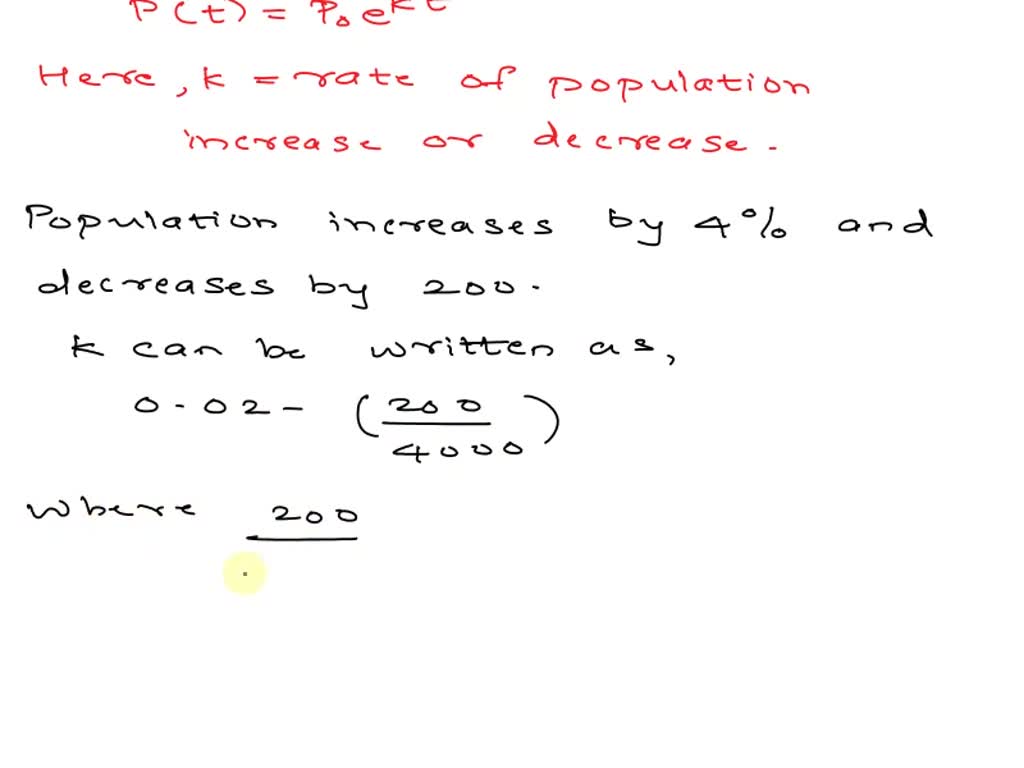 P(t) = P₀ eᵏᵗ
Here, k = rate of population
increase or decrease.
Population increases by 4% and
decreases by 200.
k can be written as,
0.02 - (200/4000)
where 200